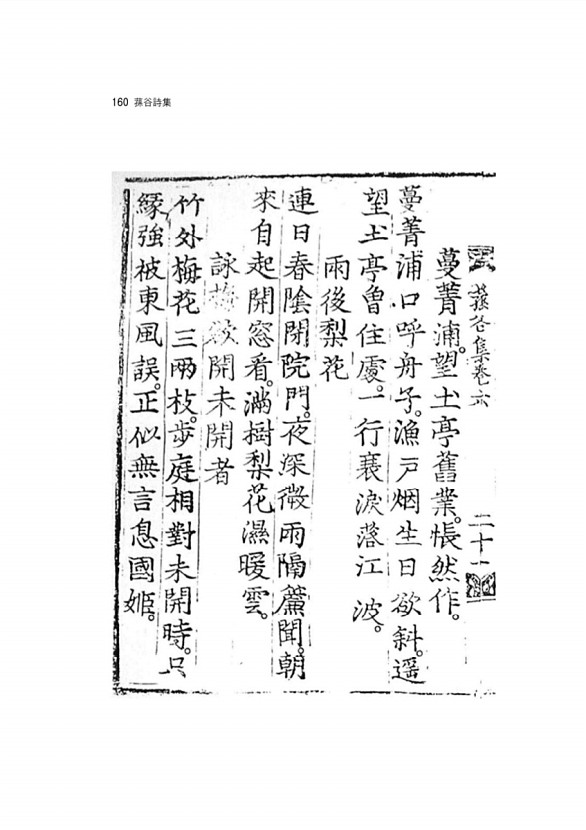 160 蓀谷詩集
蓀谷集卷六
二十一
蔓菁浦。望土亭舊業。悵然作。
蔓菁浦口呼舟子。漁戶烟生日欲斜。遥
望土亭曾住處。一行衰淚落江波。
雨後梨花
連日春陰閉院門。夜深微雨隔簾聞。朝
來自起開窓看。滿樹梨花濕暖雲。
詠梅 開未開者
竹外梅花三兩枝。步庭相對未開時。只
緣強被東風誤。正似無言息國姬。